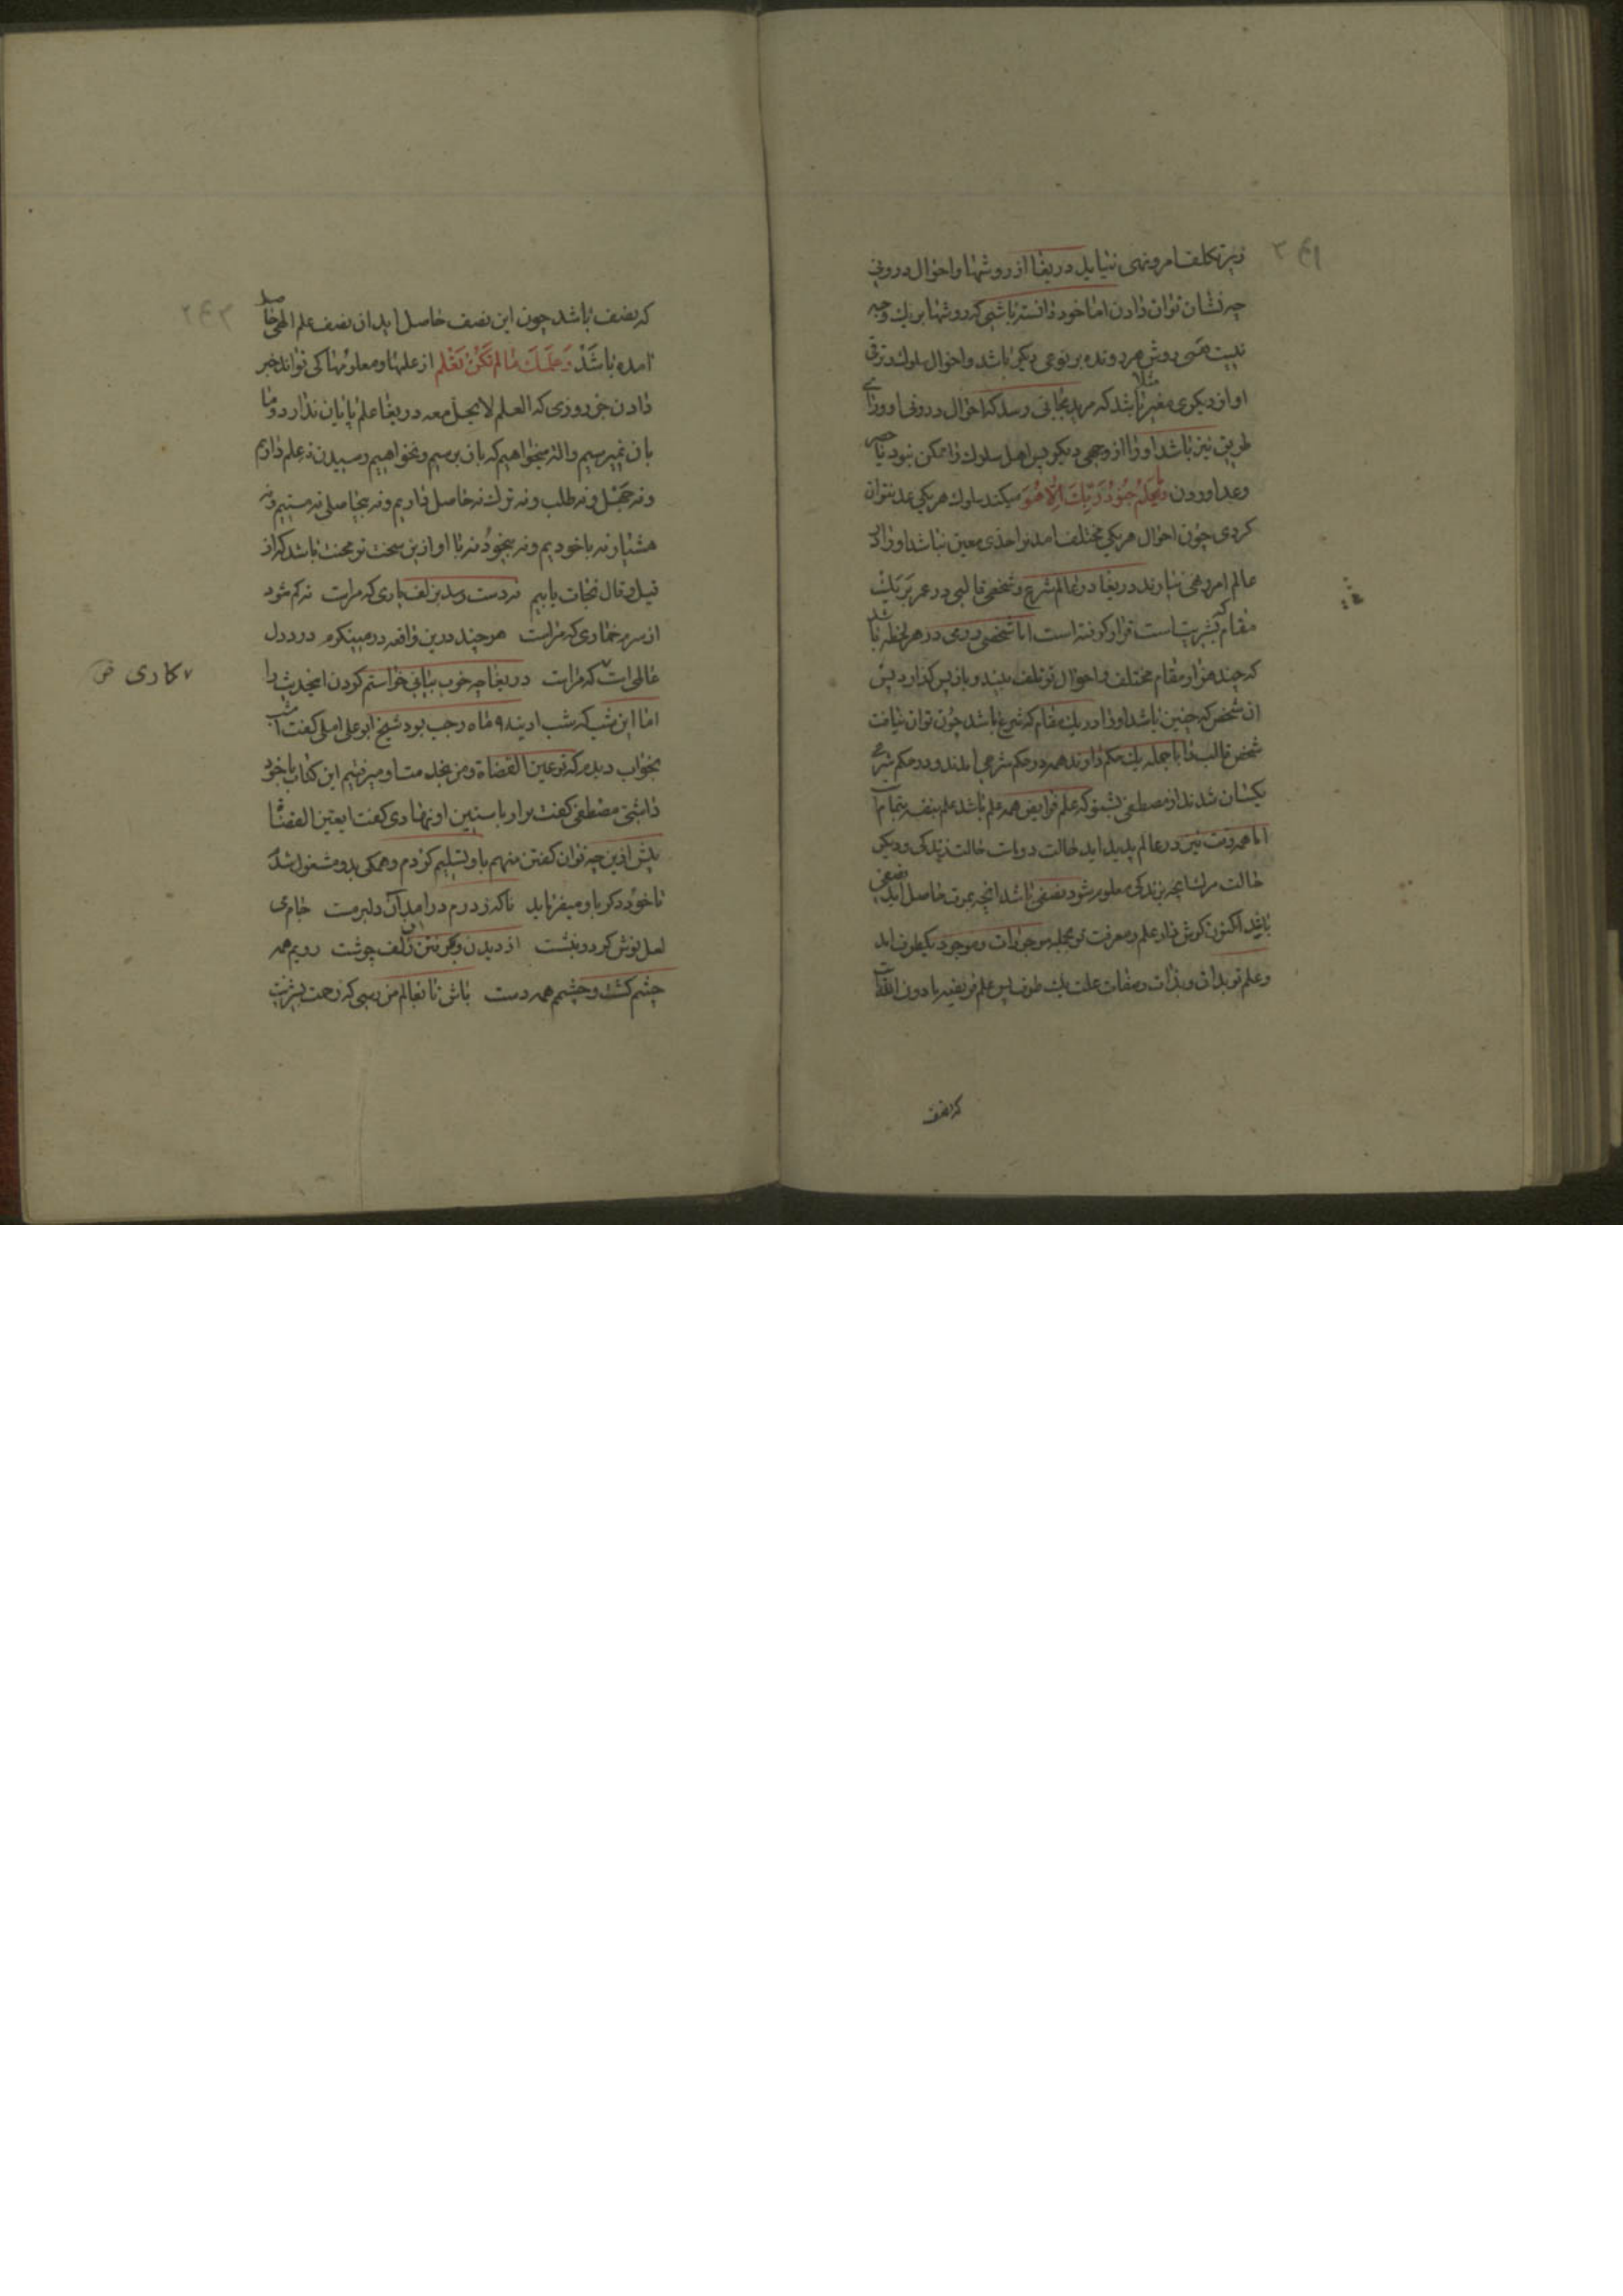 زیر تکلف امر و نهی نیاید دریغا از روشها و احوال درونی
چه نشان توان دادن اما خود دانسته باشی که روشها بر یک وجه
نیست همی روش هر رونده بر نوعی دیگر باشد و احوال سلوک و ترقی
او از دیگری مغیر باشد مثلا که مرید بجائی رسد که احوال درونی او ورای
طریق نیز باشد او را از وجهی دیگر پس اهل سلوک را ممکن نبود با حصر
و عد اوردن وَمَا یَعْلَمُ جُنُودَ رَبِّکَ اِلّا هُوَ میکند سلوک هر یکی عد نتوان
کردی چون احوال هر یکی مختلف امد نواخذی معین نباشد او را در
عالم امر و نهی نیاوند دریغا در عالم شرع و شخصی قالبی در عمر بر یک
مقام که بشریت است قرار گرفته است اما شخصی روحی در هر لحظه باشد
که چند هزار مقام مختلف و احوال تو تلف بیند و بازپس گذارد پس
ان شخص که چنین باشد او را در یک مقام که شرع باشد چون توان یافت
شخص قالب را با جمله یک حکم داوند همه در حکم شرعی امدند و در حکم شرع
یکسان شدند از مصطفی بشنو که علم فرایض همه علم باشد علم بنفسه بتمام آ
اما همه وقت نیز در عالم پدید اید حالت دو بات حالت زندگی و دیگر
حالت مرک انچه بزندگی معلوم شود نصفی باشد انچه بمرک حاصل اید نصفی
باشد اکنون گوش دار علم و معرفت تو بجمله موجودات و موجود یکطرف اید
و علم تو بدان و بذات و صفات علت یک طرف پس علم تو بغیر مادون الله
که نصف
که نصف باشد چون این نصف حاصل اید ان نصف علم الهی حاصل
امده باشد وَعَلَّمَکَ مَا لَمْ تَکُنْ تَعْلَم از علمها و معلومها کی تواند خبر
دادن جز روزی که العلم لا یحل معه دریغا علم پایان ندارد و ما
بان نمیرسیم والله میخواهیم که بان برسیم و نخواهیم رسیدن نه علم داریم
و نه جهل و نه طلب و نه ترک نه حاصل داریم و نه بیحاصلی نه مستیم و نه
هشیار نه باخودیم و نه بیخود نه با او ازین سخت تر محنت باشد که از
قیل و قال نجات یابیم نه دست رسد بزلف یاری که مراست نه کم شود
از سرم خماری که مراست هر چند درین واقعه در مینگرم درد دل
عالمی است که مراست دریغا چه خوب بیانی خواستم کردن این حدیث را
کاری
اما این شب که شب ادینه ۹ ماه رجب بود شیخ ابو علی املی گفت امشب
بخواب دیدم که تو عین القضاة و من بخدمت او میرفتیم این کتاب با خود
داشتی مصطفی گفت براور باستین او نهادی گفت ای عین القضاة
بیش ازین چه توان گفتن منهم باو تسلیم کردم و همگی بدو مشغول شدم
تا خود دیگر باو میفرماید ناگه ز درم درامد آن دلبر مست جام می
لعل نوش کرد و بنشست از دیدن و از گرفتن زلف چو شست رویم همه
چشم گشت و چشمم همه دست باش تا بعالم من رسی که زحمت بشریت